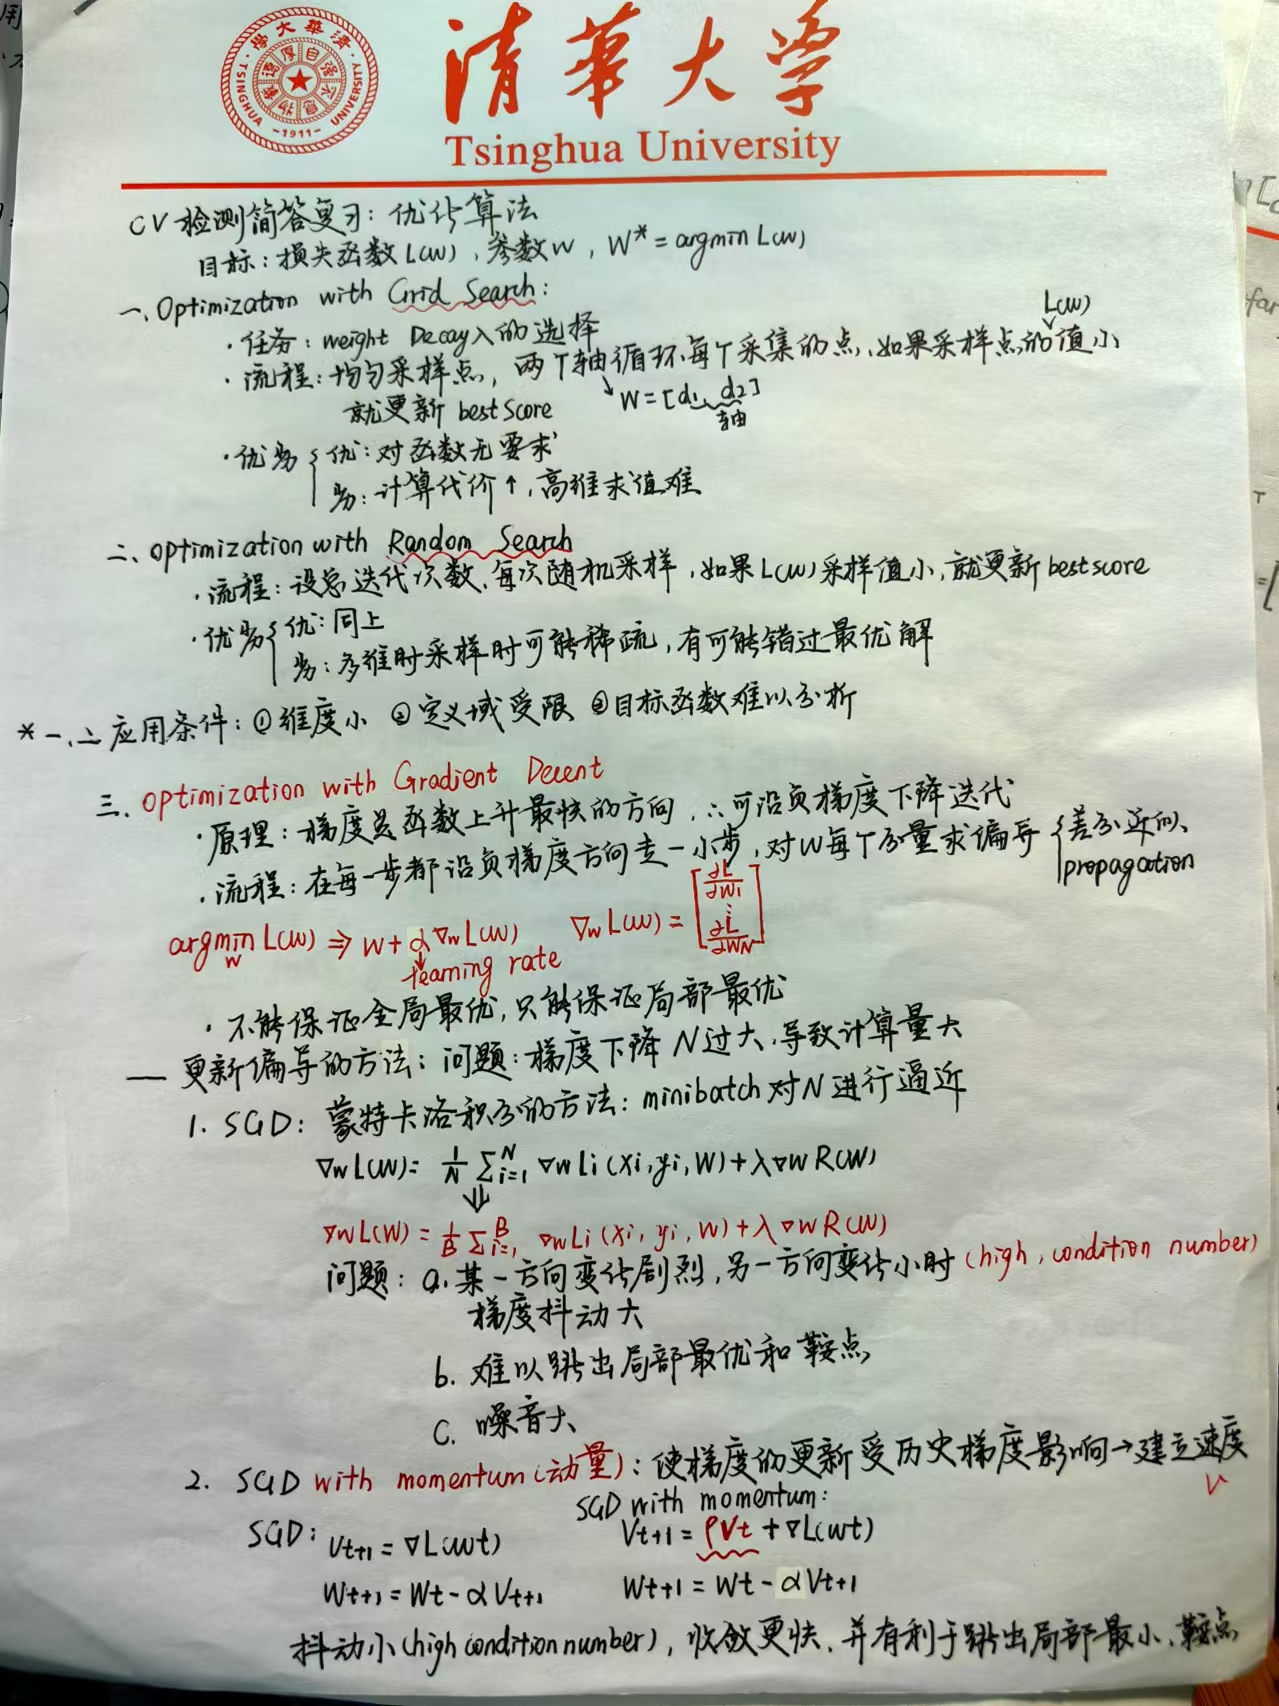 清华大学
Tsinghua University
學大華清
TSINGHUA UNIVERSITY
自强不息
厚德載物
-1911-
CV检测简答复习：优化算法
目标：损失函数L(W)，参数W，W* = argmin L(W)
一、Optimization with Grid Search：
·任务：weight Decay λ的选择
L(W)
·流程：均匀采样点，两个轴循环每个采集的点，如果采样点的值小
就更新 best score
W=[d1, d2]
轴
·优劣 { 优：对函数无要求
劣：计算代价↑，高维求值难
二、optimization with Random Search
·流程：设总迭代次数，每次随机采样，如果L(W)采样值小，就更新bestscore
·优劣 { 优：同上
劣：多维时采样时可能稀疏，有可能错过最优解
*一、二应用条件：①维度小 ②定义域受限 ③目标函数难以分析
三、optimization with Gradient Decent
·原理：梯度是函数上升最快的方向，∴可沿负梯度下降迭代
·流程：在每一步都沿负梯度方向走一小步，对W每个分量求偏导 { 差分近似、
propagation
argmin L(W) ⇒ W + α∇wL(W)　∇wL(W) = [∂L/∂W1 ⋮ ∂L/∂WN]
W
learning rate
·不能保证全局最优，只能保证局部最优
— 更新偏导的方法：问题：梯度下降 N过大，导致计算量大
1. SGD：蒙特卡洛积分的方法：minibatch对N进行逼近
∇wL(W) = 1/N Σ_{i=1}^N ∇wLi(xi, yi, W) + λ∇wR(W)
⇓
∇wL(W) = 1/B Σ_{i=1}^B ∇wLi(xi, yi, W) + λ∇wR(W)
问题：a. 某一方向变化剧烈，另一方向变化小时 (high, condition number)
梯度抖动大
b. 难以跳出局部最优和鞍点
c. 噪音大
2. SGD with momentum(动量)：使梯度的更新受历史梯度影响→建立速度
V
SGD with momentum：
SGD： Vt+1 = ∇L(Wt)　Vt+1 = ρVt + ∇L(Wt)
Wt+1 = Wt - αVt+1　Wt+1 = Wt - αVt+1
抖动小(high condition number)，收敛更快，并有利于跳出局部最小、鞍点